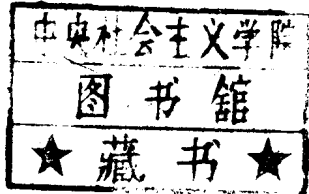 中央社会主义学院
图书舘
★ 藏书 ★